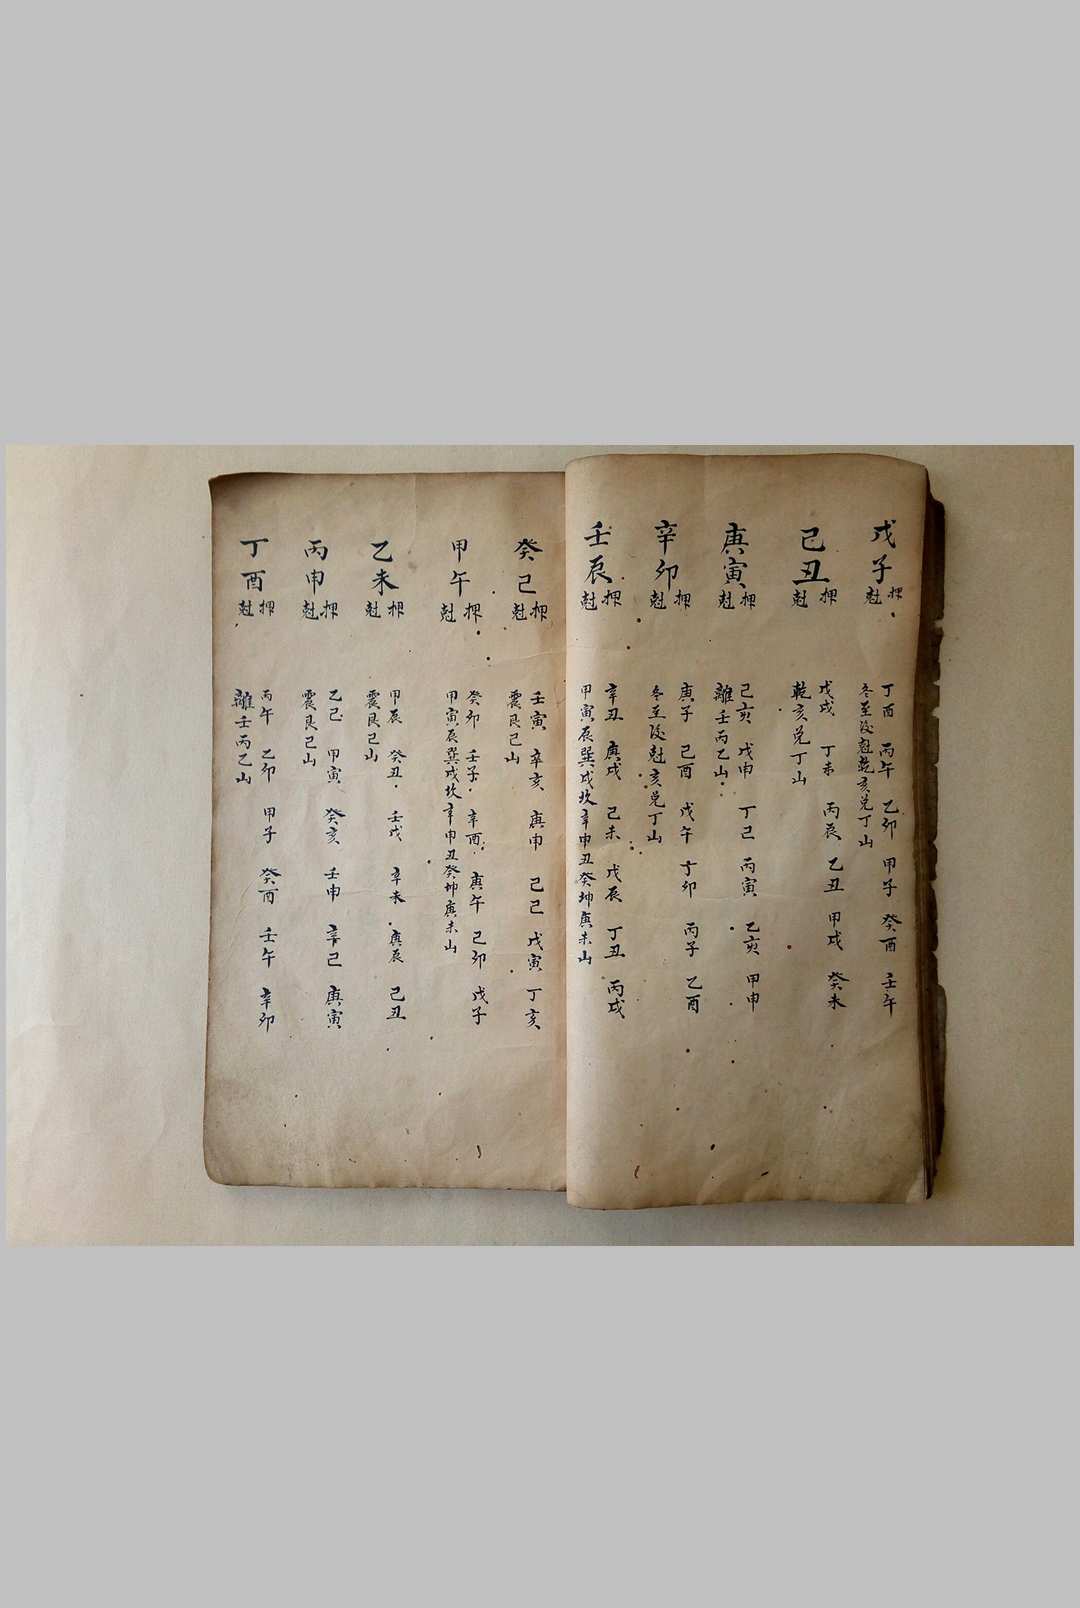 戊子
押
尅
丁酉 丙午 乙卯 甲子 癸酉 壬午
冬至後尅乾亥兌丁山
己丑
押
尅
戊戌 丁未 丙辰 乙丑 甲戌 癸未
乾亥兌丁山
庚寅
押
尅
己亥 戊申 丁巳 丙寅 乙亥 甲申
離壬丙乙山
辛卯
押
尅
庚子 己酉 戊午 丁卯 丙子 乙酉
冬至後尅亥兌丁山
壬辰
押
尅
辛丑 庚戌 己未 戊辰 丁丑 丙戌
甲寅辰巽戌坎辛申丑癸坤庚未山
癸巳
押
尅
壬寅 辛亥 庚申 己巳 戊寅 丁亥
震艮巳山
甲午
押
尅
癸卯 壬子 辛酉 庚午 己卯 戊子
甲寅辰巽戌坎辛申丑癸坤庚未山
乙未
押
尅
甲辰 癸丑 壬戌 辛未 庚辰 己丑
震艮巳山
丙申
押
尅
乙巳 甲寅 癸亥 壬申 辛巳 庚寅
震艮巳山
丁酉
押
尅
丙午 乙卯 甲子 癸酉 壬午 辛卯
離壬丙乙山